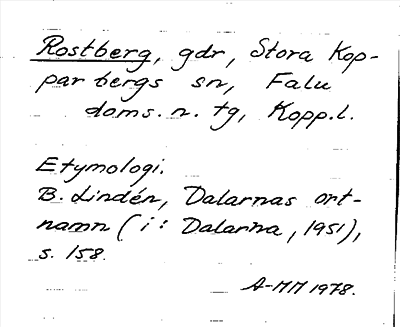 Rostberg, gdr, Stora Kop-
parbergs sn, Falu
doms. n. tg, Kopp. l.
Etymologi.
B. Lindén, Dalarnas ort-
namn (i: Dalarna, 1951),
s. 158.
A-MM 1978.